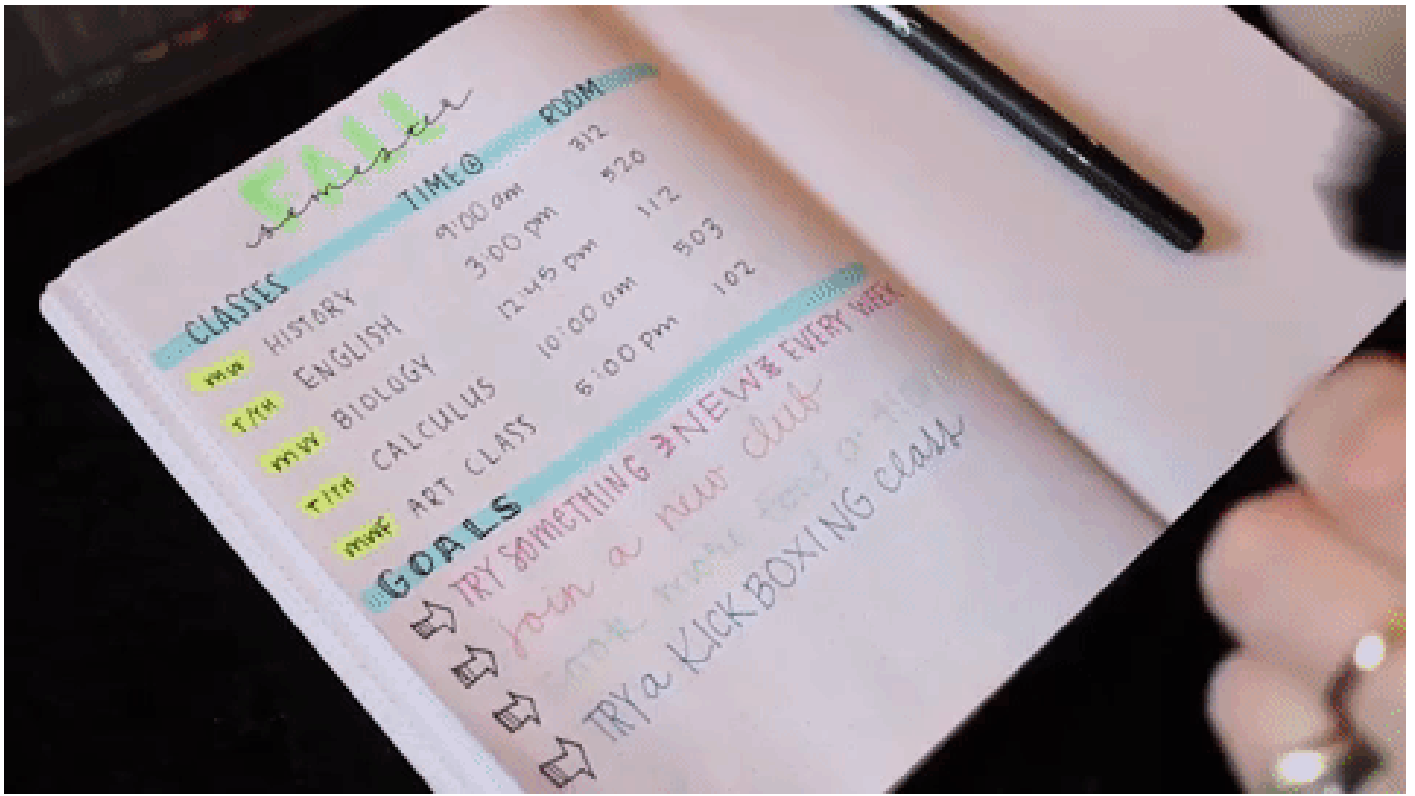 FALL
semester
CLASSES TIME ROOM
MW HISTORY 9:00 am 312
T/TH ENGLISH 3:00 pm 520
MW BIOLOGY 12:45 pm 112
T/TH CALCULUS 10:00 am 503
MWF ART CLASS 5:00 pm 102
GOALS
TRY SOMETHING NEW EVERY WEEK
Join a new club
more food
TRY a KICKBOXING class